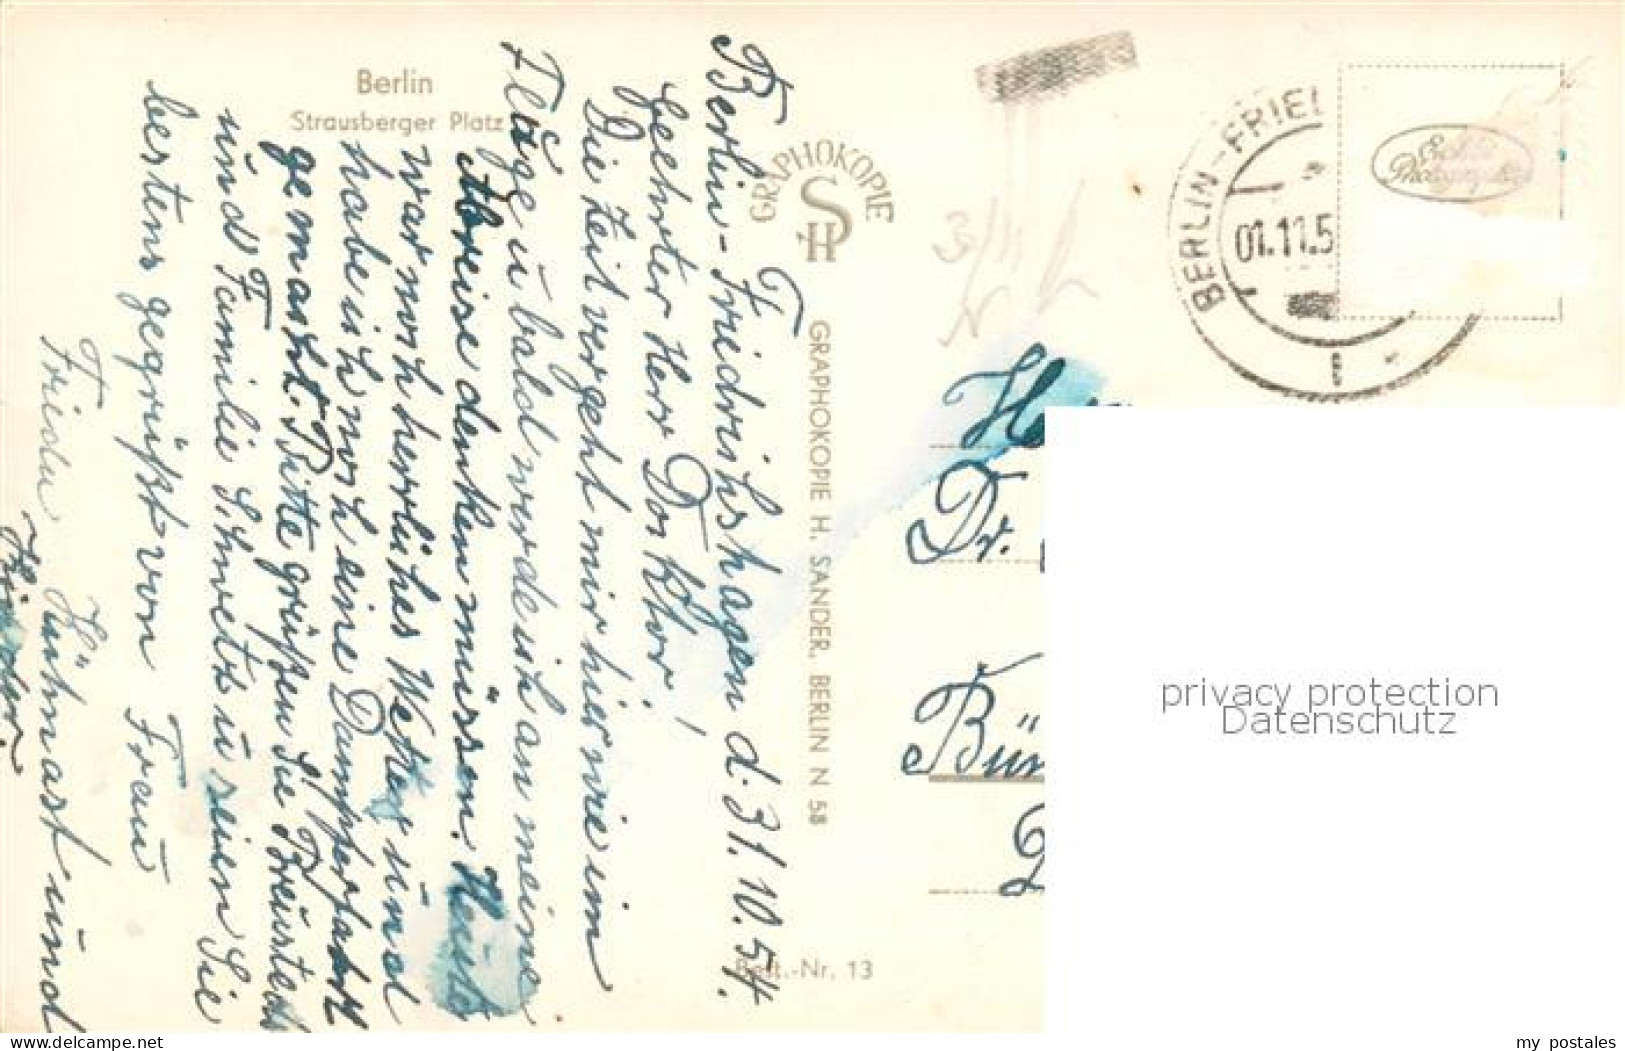 Berlin
Strausberger Platz
Berlin-Friedrichshagen d. 31.10.54.
Geehrter Herr Doktor!
Die Zeit vergeht mir hier wie im
Fluge u bald werde ich an meine
Abreise denken müssen. Heute
war noch herrliches Wetter und
habe ich noch eine Dampferfahrt
gemacht. Bitte grüßen Sie
und Familie u seien Sie
bestens gegrüßt von Frau
Frieda Kühnast und
Kinder.
GRAPHOKOPIE
SH
GRAPHOKOPIE H. SANDER, BERLIN N 58
Best.-Nr. 13
BERLIN-FRIED
01.11.5
Echte
Photographie
Dr.
Bün
privacy protection
Datenschutz
www.my-postales.com
my postales